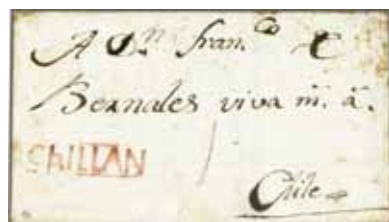 A Dn franco
Bernales viva ms. as.
CHILLAN
Chile